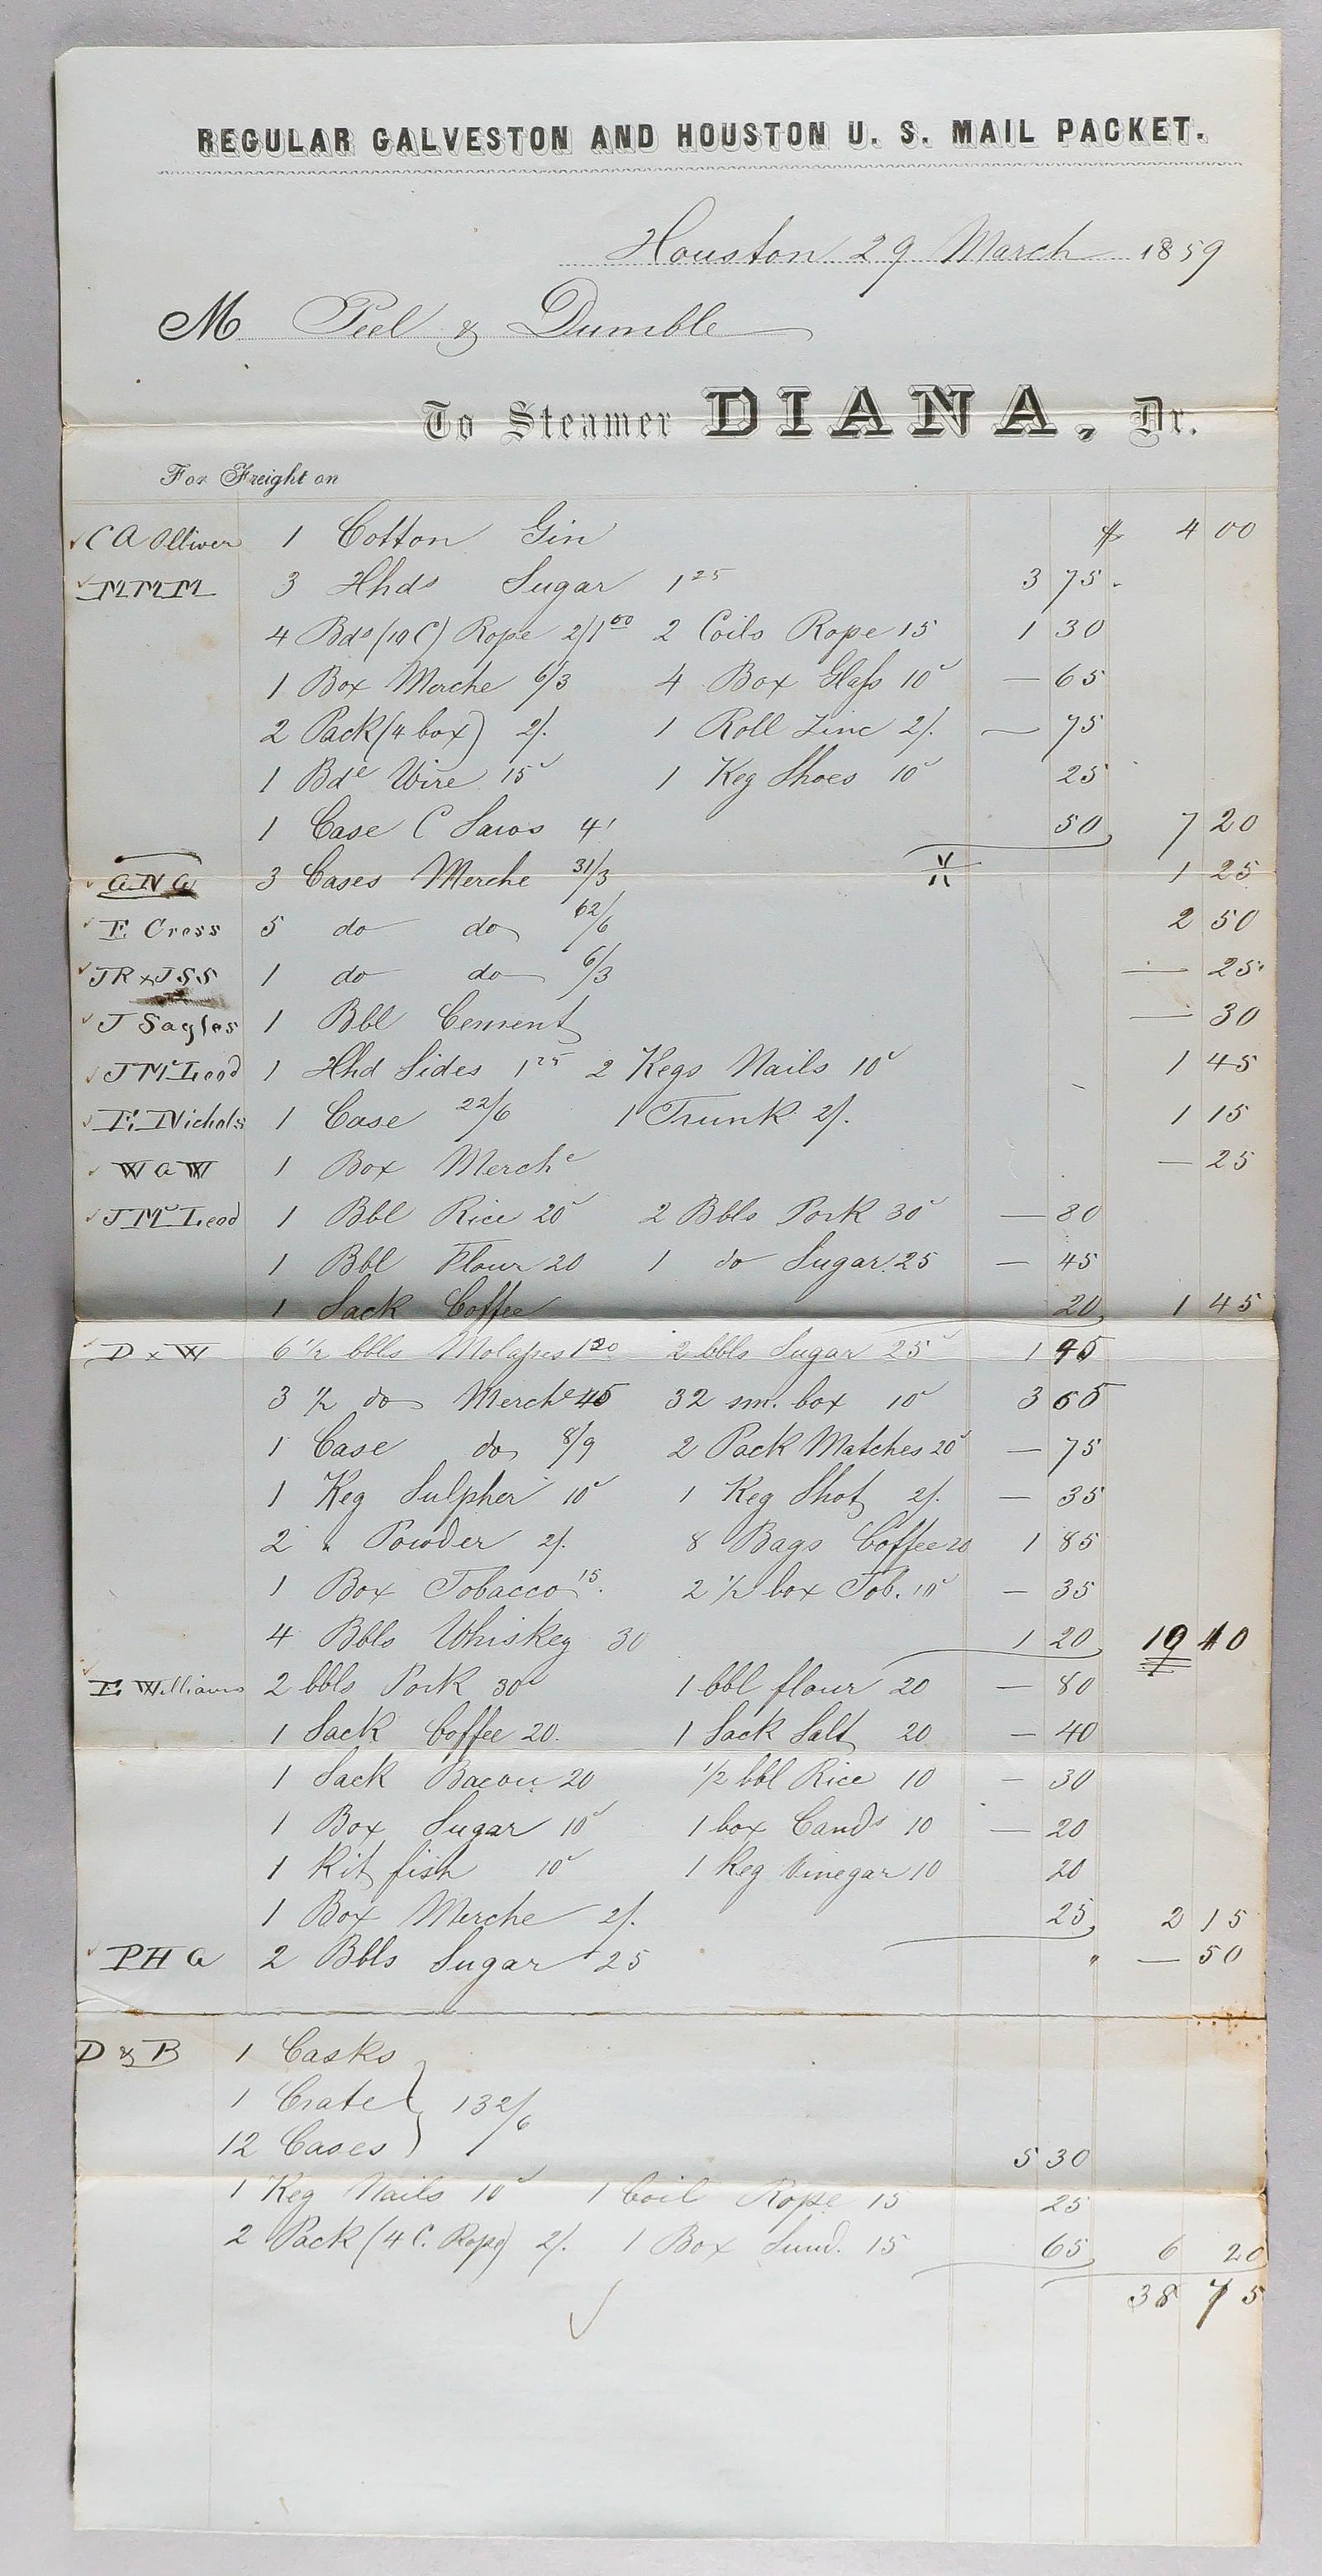 REGULAR GALVESTON AND HOUSTON U. S. MAIL PACKET.
Houston 29 March 1859
M Peel & Dumble
To Steamer DIANA, Dr.
For Freight on
C A Olliver 1 Cotton Gin $ 4 00
MMM 3 Hhds Sugar 1 25 3 75
4 Bds (10 C) Rope 2/ 1 00 2 Coils Rope 15 1 30
1 Box Merche 6/3 4 Box Glass 10 — 65
2 Pack (4 box) 2/. 1 Roll Zinc 2/. — 75
1 Bde Wire 15 1 Keg Shoes 10 25
1 Case C Saws 4/ 50 7 20
3 Cases Merche 31/3 1 25
E. Cress 5 do do 62/6 2 50
JR & JSS 1 do do 6/3 — 25
J Sagles 1 Bbl Cement — 30
J McLeod 1 Hhd Sides 1 25 2 Kegs Nails 10 1 45
E. Nichols 1 Case 22/6 1 Trunk 2/. 1 15
W a W 1 Box Merche — 25
J McLeod 1 Bbl Rice 20 2 Bbls Pork 30 — 80
1 Bbl Flour 20 1 do Sugar 25 — 45
1 Sack Coffee 20 1 45
D x W 6 1/2 bbls Molasses 1 20 2 bbls Sugar 25 1 95
3 1/2 do Merche 45 32 sm. box 10 3 65
1 Case do 8/9 2 Pack Matches 20 — 75
1 Keg Sulpher 10 1 Keg Shot 2/. — 35
2 " Powder 2/. 8 Bags Coffee 20 1 85
1 Box Tobacco 15. 2 1/2 box Tob. 10 — 35
4 Bbls Whiskey 30 1 20 10 10
E Williams 2 bbls Pork 30 1 bbl flour 20 — 80
1 Sack Coffee 20. 1 Sack Salt 20 — 40
1 Sack Bacon 20 1/2 bbl Rice 10 — 30
1 Box Sugar 10 1 box Cands 10 — 20
1 Kit fish 10 1 Keg Vinegar 10 20
1 Box Merche 2/. 25 2 15
PH G 2 Bbls Sugar 25 — 50
D & B 1 Casks
1 Crate } 132/6
12 Cases 5 30
1 Keg Nails 10 1 Coil Rope 15 25
2 Pack (4 C. Rope) 2/. 1 Box Sund. 15 65 6 20
38 75